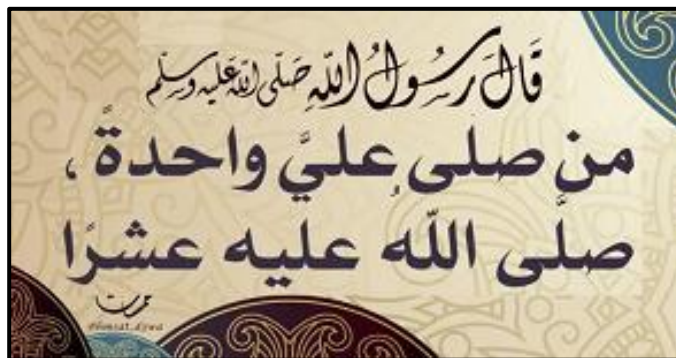 قَالَ رَسُولُ اللهِ صَلَّى اللهُ عَلَيْهِ وَسَلَّم
من صلى عليَّ واحدةً ،
صلَّى اللهُ عليه عشرًا